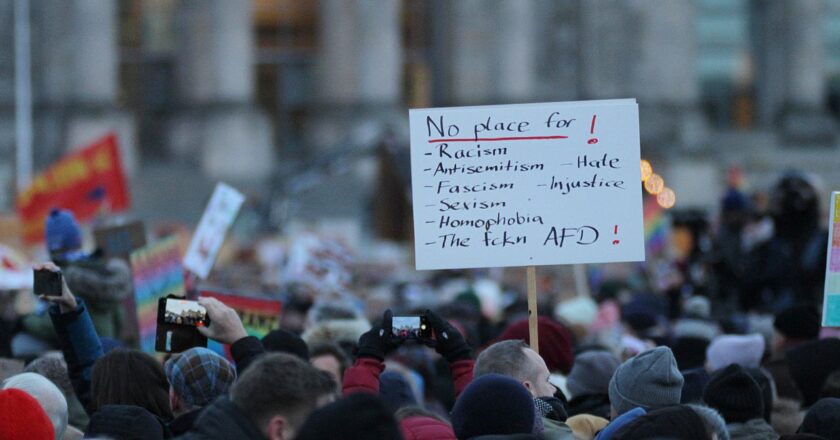 No place for !
- Racism
- Antisemitism - Hate
- Fascism - Injustice
- Sexism
- Homophobia
- The fckn AFD !